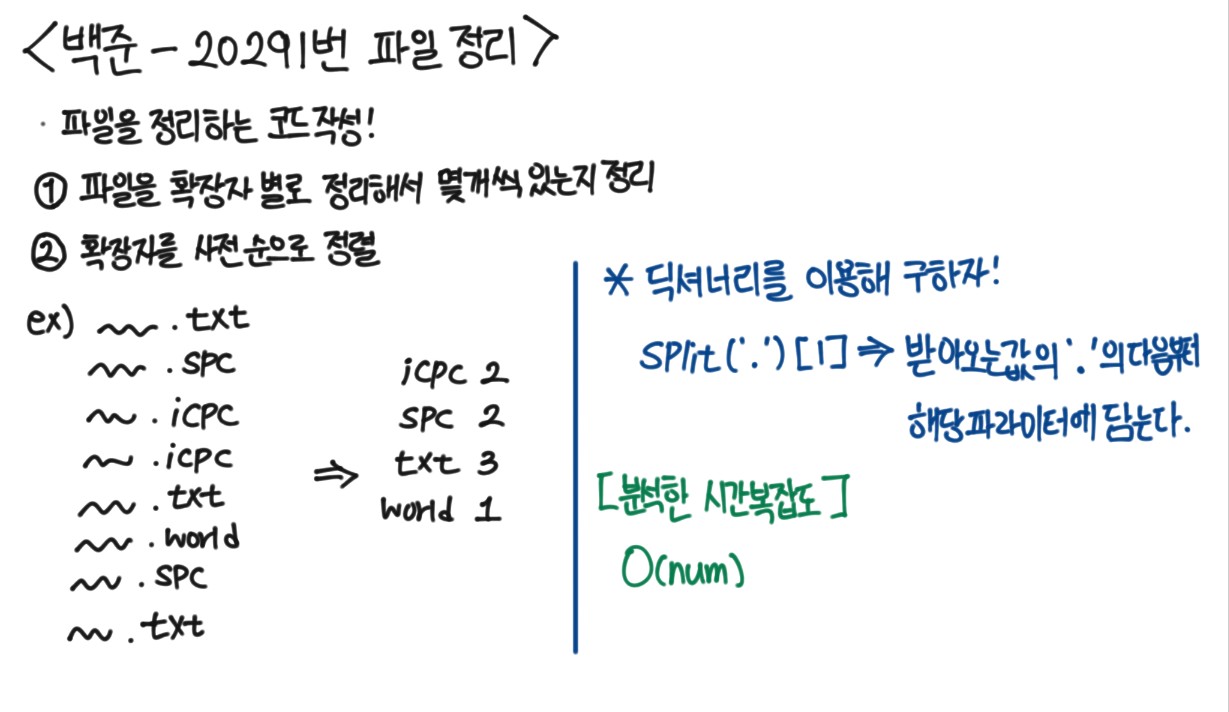 <백준 - 20291번 파일 정리>
· 파일을 정리하는 코드작성!
① 파일을 확장자 별로 정리해서 몇개씩 있는지 정리
② 확장자를 사전 순으로 정렬
ex) ~~ .txt
~~ .SPC
~~ .icpc
~~ .icpc
~~ .txt
~~ .world
~~ .SPC
~~ .txt
⇒
icpc 2
SPC 2
txt 3
world 1
* 딕셔너리를 이용해 구하자!
split('.')[1] ⇒ 받아오는값의 '.'의 다음부터
해당파라미터에 담는다.
[분석한 시간복잡도]
O(num)